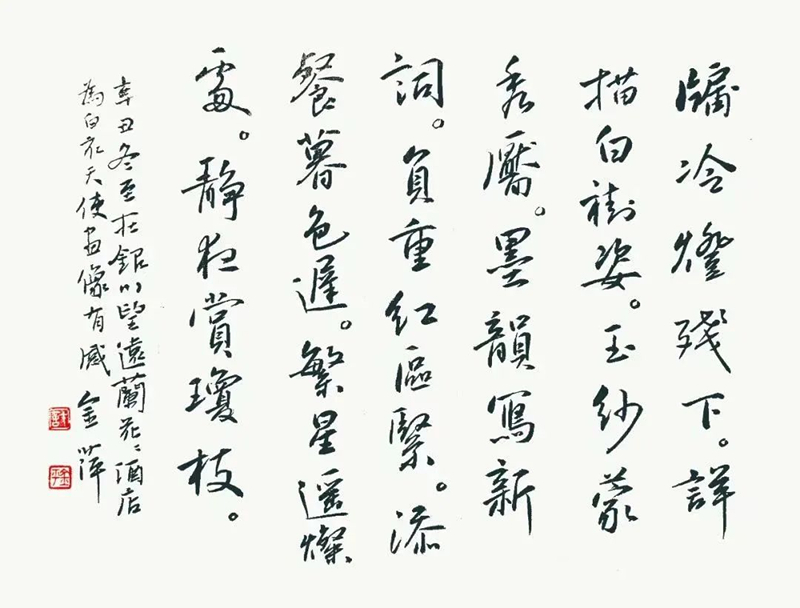 牖冷燈殘下。詳
描白樹姿。玉紗蒙
秀靨。墨韻寫新
詞。負重紅區緊。添
餐暮色遲。繁星遥燦
處。靜夜賞瓊枝。
辛丑冬至在銀川望遠蘭花々酒店
為白衣天使畫像有感 金萍